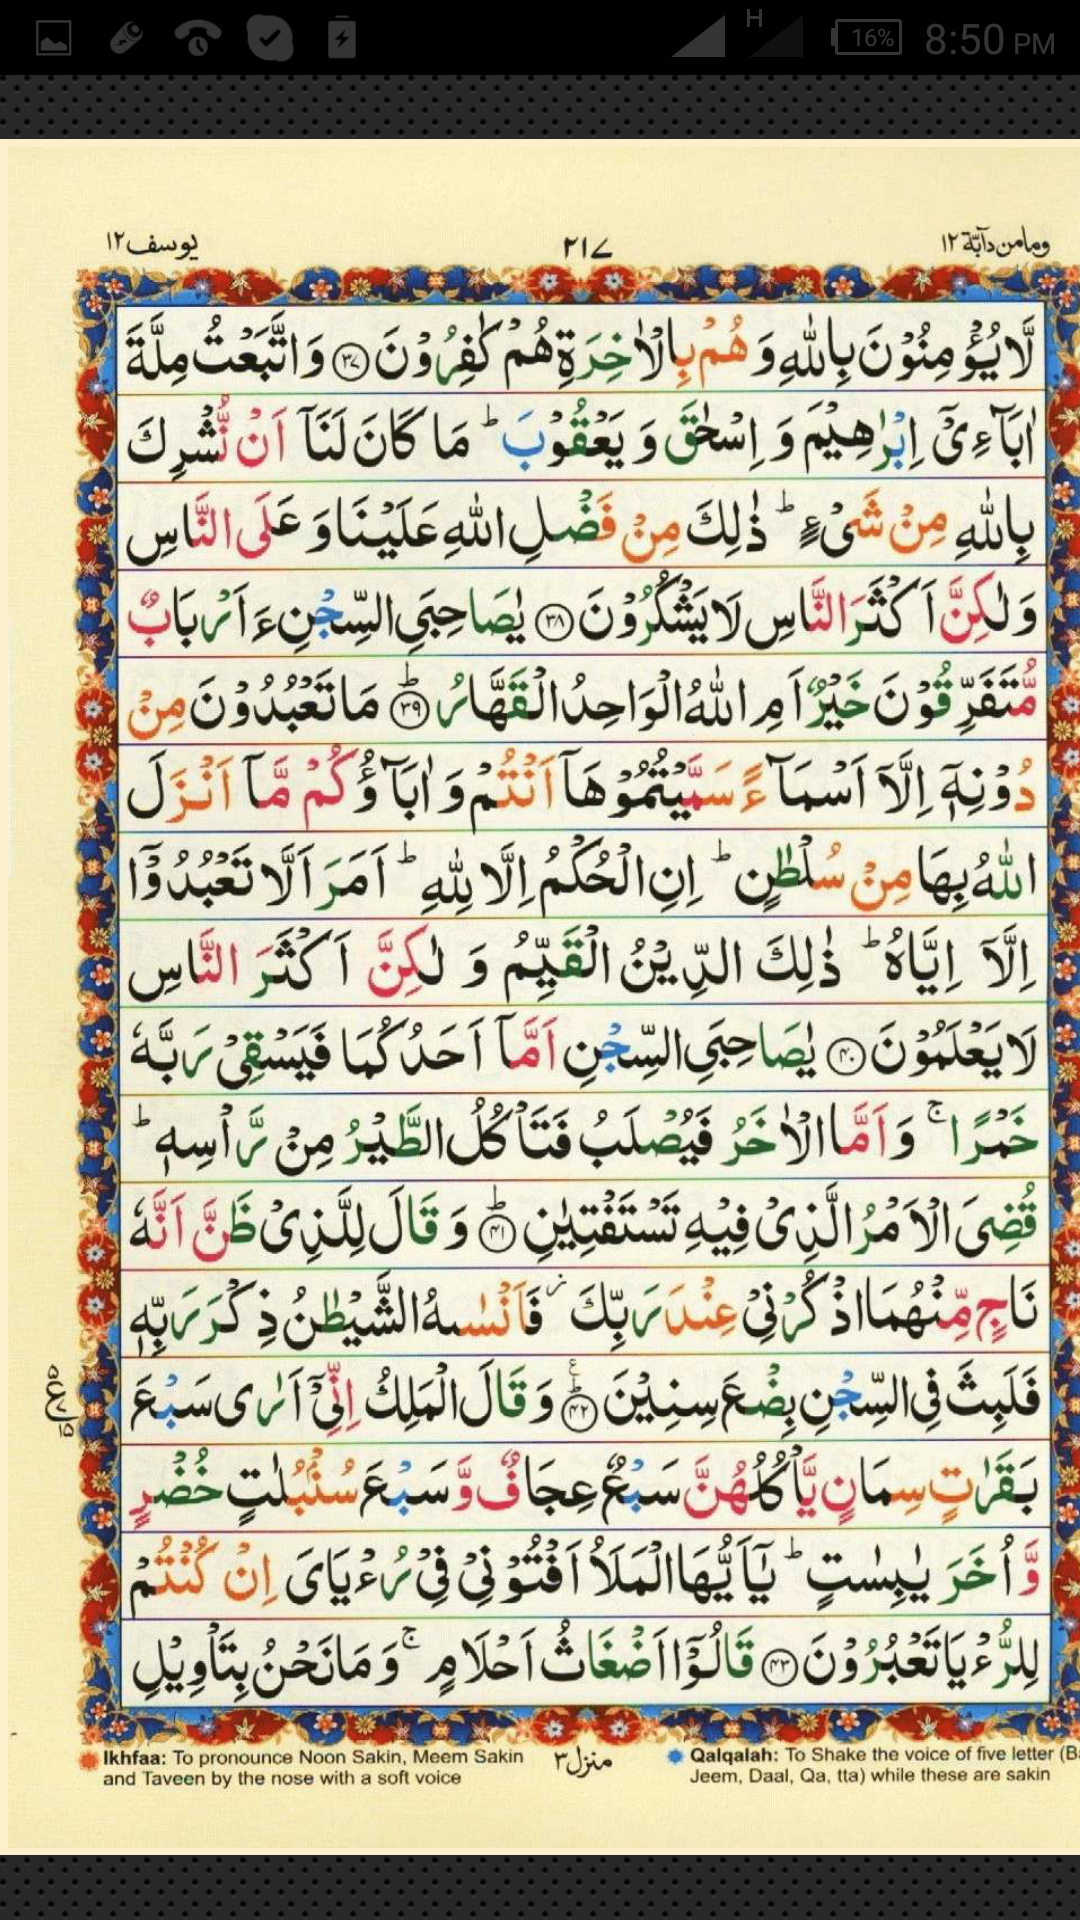 H 16% 8:50 PM
ومامن دآبّة ١٢ ٢١٧ يوسف ١٢
لَّا يُؤْمِنُوْنَ بِاللّٰهِ وَ هُمْ بِالْاٰخِرَةِ هُمْ كٰفِرُوْنَ ﴿٣٧﴾ وَ اتَّبَعْتُ مِلَّةَ
اٰبَآءِیْۤ اِبْرٰهِیْمَ وَ اِسْحٰقَ وَ یَعْقُوْبَ ؕ مَا كَانَ لَنَاۤ اَنْ نُّشْرِكَ
بِاللّٰهِ مِنْ شَیْءٍ ؕ ذٰلِكَ مِنْ فَضْلِ اللّٰهِ عَلَیْنَا وَ عَلَی النَّاسِ
وَ لٰكِنَّ اَكْثَرَ النَّاسِ لَا یَشْكُرُوْنَ ﴿٣٨﴾ یٰصَاحِبَیِ السِّجْنِ ءَاَرْبَابٌ
مُّتَفَرِّقُوْنَ خَیْرٌ اَمِ اللّٰهُ الْوَاحِدُ الْقَهَّارُ ؕ﴿٣٩﴾ مَا تَعْبُدُوْنَ مِنْ
دُوْنِهٖۤ اِلَّاۤ اَسْمَآءً سَمَّیْتُمُوْهَاۤ اَنْتُمْ وَ اٰبَآؤُكُمْ مَّاۤ اَنْزَلَ
اللّٰهُ بِهَا مِنْ سُلْطٰنٍ ؕ اِنِ الْحُكْمُ اِلَّا لِلّٰهِ ؕ اَمَرَ اَلَّا تَعْبُدُوْۤا
اِلَّاۤ اِیَّاهُ ؕ ذٰلِكَ الدِّیْنُ الْقَیِّمُ وَ لٰكِنَّ اَكْثَرَ النَّاسِ
لَا یَعْلَمُوْنَ ﴿٤٠﴾ یٰصَاحِبَیِ السِّجْنِ اَمَّاۤ اَحَدُكُمَا فَیَسْقِیْ رَبَّهٗ
خَمْرًا ۚ وَ اَمَّا الْاٰخَرُ فَیُصْلَبُ فَتَاْكُلُ الطَّیْرُ مِنْ رَّاْسِهٖ ؕ
قُضِیَ الْاَمْرُ الَّذِیْ فِیْهِ تَسْتَفْتِیٰنِ ؕ﴿٤١﴾ وَ قَالَ لِلَّذِیْ ظَنَّ اَنَّهٗ
نَاجٍ مِّنْهُمَا اذْكُرْنِیْ عِنْدَ رَبِّكَ ؗ فَاَنْسٰىهُ الشَّیْطٰنُ ذِكْرَ رَبِّهٖ
فَلَبِثَ فِی السِّجْنِ بِضْعَ سِنِیْنَ ؕ﴿٤٢﴾ ع وَ قَالَ الْمَلِكُ اِنِّیْۤ اَرٰی سَبْعَ
بَقَرٰتٍ سِمَانٍ یَّاْكُلُهُنَّ سَبْعٌ عِجَافٌ وَّ سَبْعَ سُنْۢبُلٰتٍ خُضْرٍ
وَّ اُخَرَ یٰبِسٰتٍ ؕ یٰۤاَیُّهَا الْمَلَاُ اَفْتُوْنِیْ فِیْ رُءْیَایَ اِنْ كُنْتُمْ
لِلرُّءْیَا تَعْبُرُوْنَ ﴿٤٣﴾ قَالُوْۤا اَضْغَاثُ اَحْلَامٍ ۚ وَ مَا نَحْنُ بِتَاْوِیْلِ
Ikhfaa: To pronounce Noon Sakin, Meem Sakin
and Taveen by the nose with a soft voice
منزل ٣
Qalqalah: To Shake the voice of five letter (Ba
Jeem, Daal, Qa, tta) while these are sakin